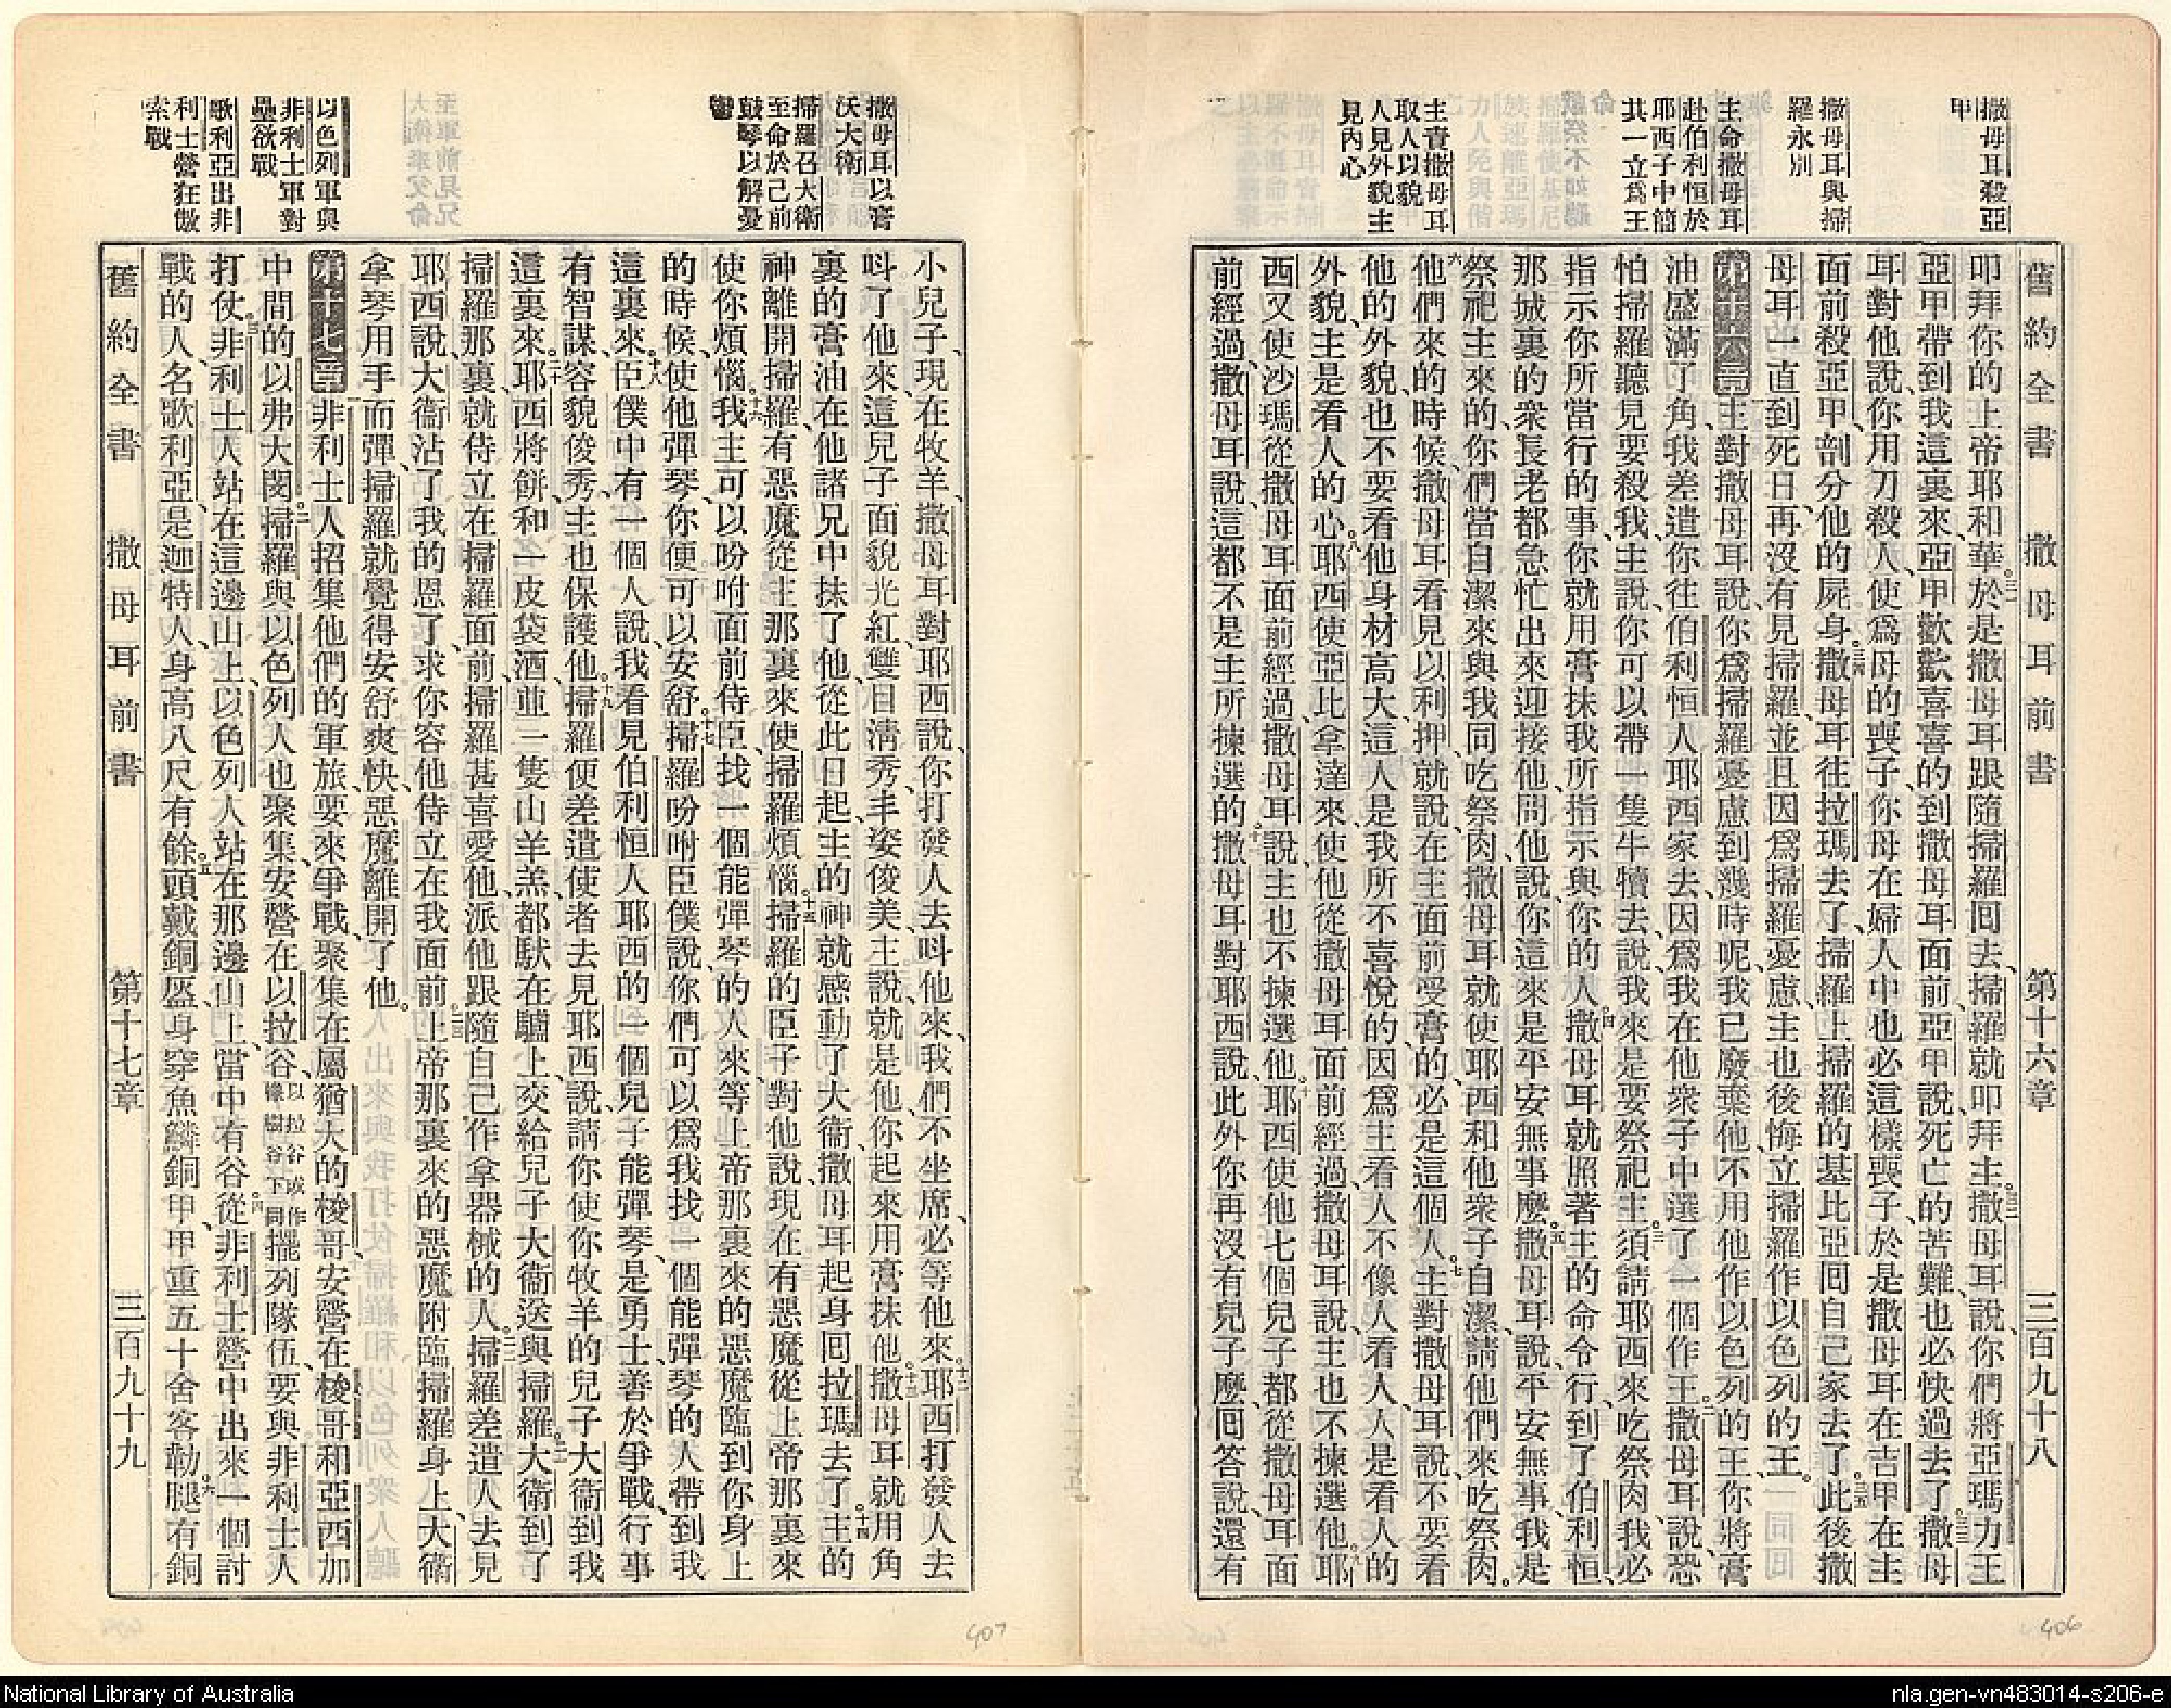 舊約全書 撒母耳前書 第十六章 三百九十八
撒母耳殺亞
甲
撒母耳與掃
羅永別
主命撒母耳
赴伯利恒於
耶西子中簡
其一立爲王
主責撒母耳
取人以貌
人見外貌主
見內心
叩拜你的上帝耶和華。三一於是撒母耳跟隨掃羅囘去、掃羅就叩拜主。三二撒母耳說、你們將亞瑪力王
亞甲帶到我這裏來、亞甲歡歡喜喜的到撒母耳面前、亞甲說、死亡的苦難也必快過去了。三三撒母
耳對他說、你用刀殺人、使爲母的喪子、你母在婦人中也必這樣喪子、於是撒母耳在吉甲在主
面前殺亞甲、剖分他的屍身。三四撒母耳往拉瑪去了、掃羅上掃羅的基比亞囘自己家去了。三五此後撒
母耳一直到死日、再沒有見掃羅、並且因爲掃羅憂慮、主也後悔立掃羅作以色列的王。
第十六章 主對撒母耳說、你爲掃羅憂慮到幾時呢、我已廢棄他、不用他作以色列的王、你將膏
油盛滿了角、我差遣你往伯利恒人耶西家去、因爲我在他衆子中選了一個作王。二撒母耳說、恐
怕掃羅聽見要殺我、主說、你可以帶一隻牛犢去、說、我來是要祭祀主。三須請耶西來吃祭肉、我必
指示你所當行的事、你就用膏抹我所指示與你的人。四撒母耳就照著主的命令行、到了伯利恒、
那城裏的衆長老都急忙出來迎接他、問他說、你這來是平安無事麼。五撒母耳說、平安無事、我是
祭祀主來的、你們當自潔來與我同吃祭肉、撒母耳就使耶西和他衆子自潔、請他們來吃祭肉。
六他們來的時候、撒母耳看見以利押、就說、在主面前受膏的必是這個人。七主對撒母耳說、不要看
他的外貌、也不要看他身材高大、這人是我所不喜悅的、因爲主看人不像人看人、人是看人的
外貌、主是看人的心。八耶西使亞比拿達來、使他從撒母耳面前經過、撒母耳說、主也不揀選他。九耶
西又使沙瑪從撒母耳面前經過、撒母耳說、主也不揀選他。十耶西使他七個兒子都從撒母耳面
前經過、撒母耳說、這都不是主所揀選的。十一撒母耳對耶西說、此外你再沒有兒子麼、囘答說、還有
撒母耳以膏
沃大衛
掃羅召大衛
至命於己前
鼓琴以解憂
鬱
以色列軍與
非利士軍對
壘欲戰
歌利亞出非
利士營狂傲
索戰
小兒子、現在牧羊、撒母耳對耶西說、你打發人去呌他來、我們不坐席、必等他來。十二耶西打發人去
呌了他來、這兒子面貌光紅、雙目淸秀、丰姿俊美、主說、就是他、你起來用膏抹他。十三撒母耳就用角
裏的膏油在他諸兄中抹了他、從此日起、主的神就感動了大衞、撒母耳起身囘拉瑪去了。十四主的
神離開掃羅、有惡魔從主那裏來使掃羅煩惱。十五掃羅的臣子對他說、現在有惡魔從上帝那裏來
使你煩惱。十六我主可以吩咐面前侍臣、找一個能彈琴的人來、等上帝那裏來的惡魔臨到你身上
的時候、使他彈琴、你便可以安舒。十七掃羅吩咐臣僕說、你們可以爲我找一個能彈琴的人帶到我
這裏來。十八臣僕中有一個人說、我看見伯利恒人耶西的一個兒子能彈琴、是勇士、善於爭戰、行事
有智謀、容貌俊秀、主也保護他。十九掃羅便差遣使者去見耶西說、請你使你牧羊的兒子大衞到我
這裏來。二十耶西將餅、和一皮袋酒、並一隻山羊羔、都馱在驢上、交給兒子大衞送與掃羅。二一大衞到了
掃羅那裏、就侍立在掃羅面前、掃羅甚喜愛他、派他跟隨自己作拿器械的人。二二掃羅差遣人去見
耶西說、大衞沾了我的恩了、求你容他侍立在我面前。二三上帝那裏來的惡魔附臨掃羅身上、大衞
拿琴用手而彈、掃羅就覺得安舒爽快、惡魔離開了他。
第十七章 非利士人招集他們的軍旅、要來爭戰、聚集在屬猶大的梭哥、安營在梭哥和亞西加
中間的以弗大閔。二掃羅與以色列人也聚集、安營在以拉谷、以拉谷或作橡樹谷下同擺列隊伍、要與非利士人
打仗。三非利士人站在這邊山上、以色列人站在那邊山上、當中有谷。四從非利士營中出來一個討
戰的人、名歌利亞、是迦特人、身高八尺有餘。五頭戴銅盔、身穿魚鱗銅甲、甲重五十舍客勒。六腿有銅
舊約全書 撒母耳前書 第十七章 三百九十九
406
407
National Library of Australia
nla.gen-vn483014-s206-e